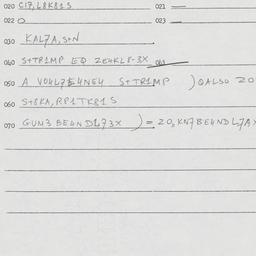 020 C17, L8K81S 021 —
022 O 023 —
030 KAL7A, S+N
040 S+TR1MP EQ 2E4KL8-3X 041
050 A V04L7E4NE4 S+TR1MP ) QALSO 20
060 S+8KA, RP1TK81S
070 GUN3 BE4ND173X ) = 20, KN7BE4ND L7A